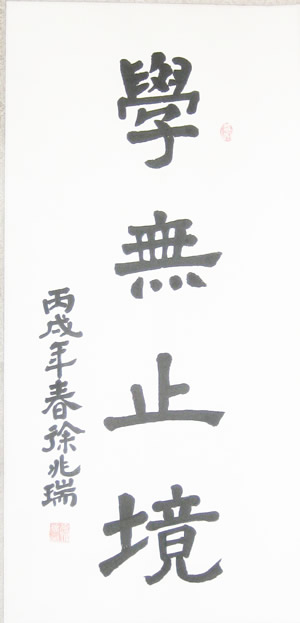 學無止境
丙戌年春徐兆瑞